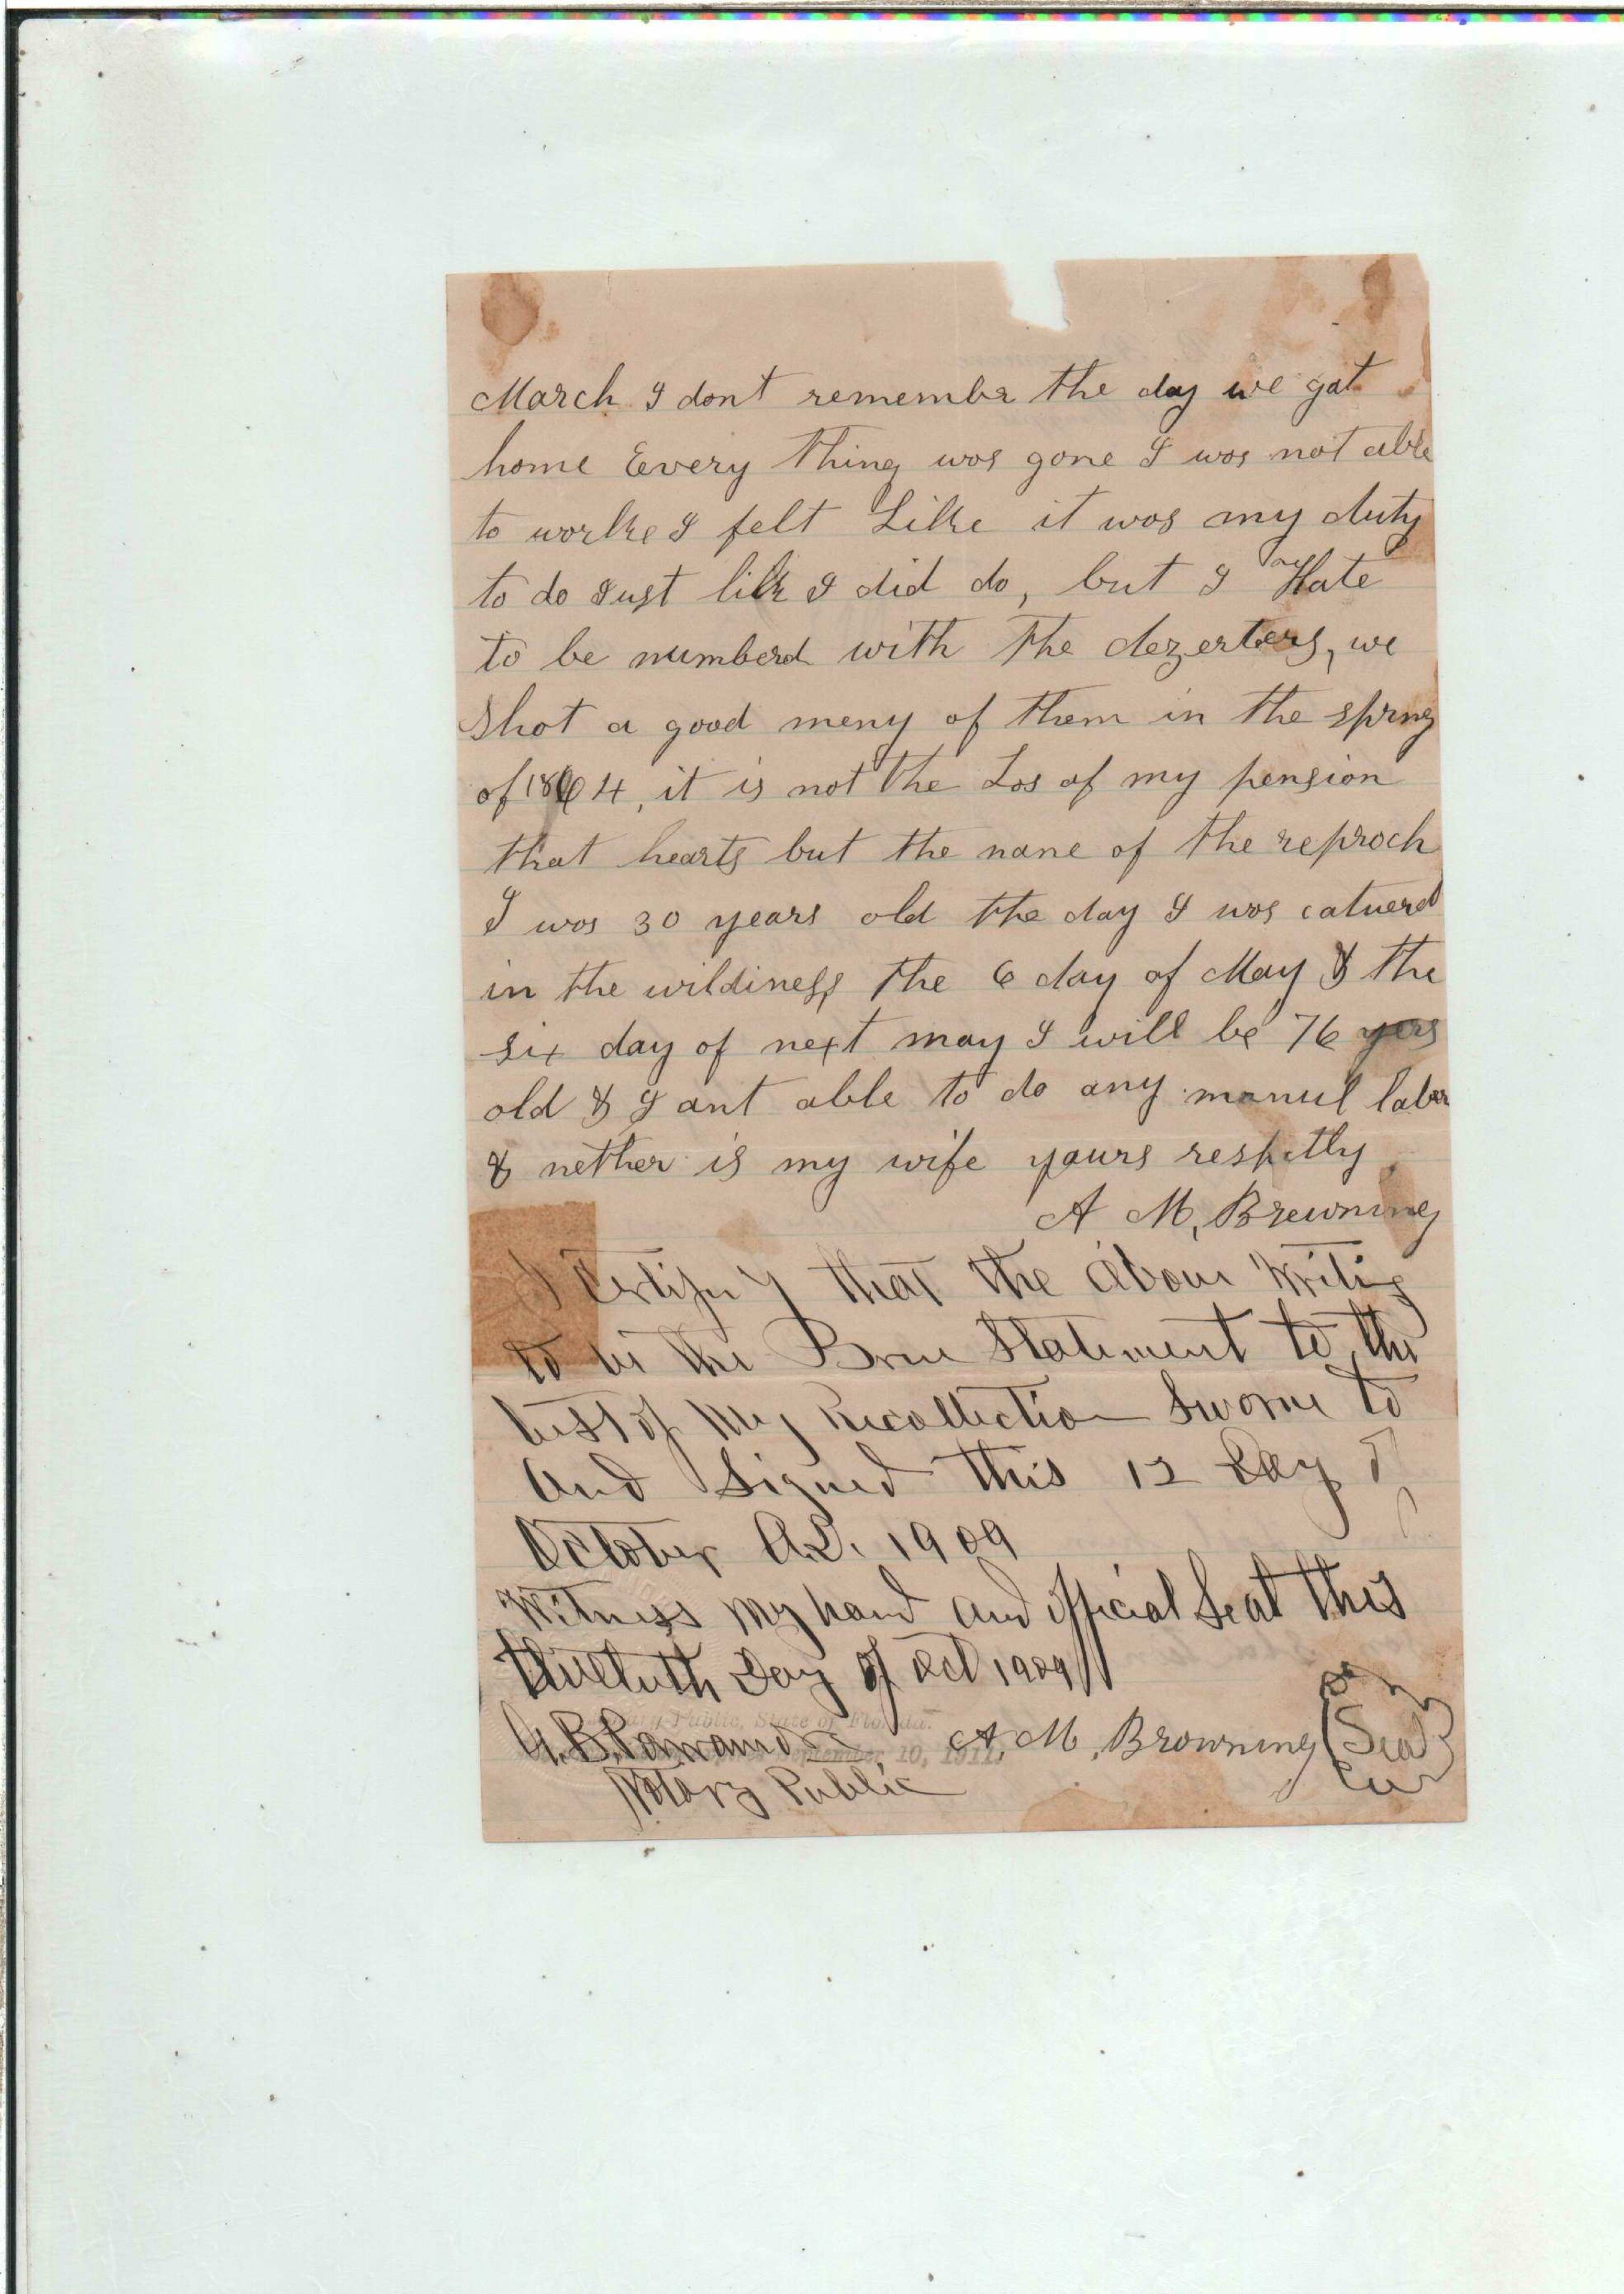 March I dont remembr the day we got
home Every thing was gone I was not able
to worke I felt Like it was my duty
to do Just like I did do, but I Hate
to be numberd with the dezerters, we
shot a good meny of them in the spring
of 1864, it is not the Los of my pension
that hearts but the name of the reproch
I was 30 years old the day I was catuerd
in the wildiness the 6 day of May & the
six day of next may I will be 76 yers
old & I ant able to do any manul labor
& nether is my wife yours respctly
A M, Brewning
I Certify that the above Writing
to be the Statement to the
best of My Recollection Sworne to
and Signed this 12 Day of
October A.D. 1909
Witness My hand and official Seal this
Day of Oct 1909
Notary Public, State of Florida.
G.B.
September 10, 1911.
A M, Browning (Seal)
Notary Public